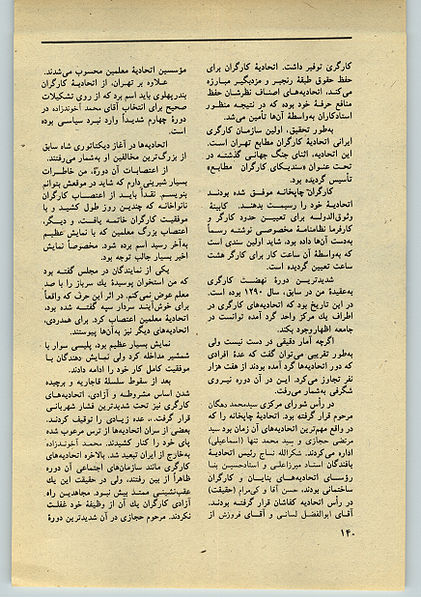 کارگری توفیر داشت. اتحادیهٔ کارگران برای
حفظ حقوق طبقهٔ رنجبر و مزدبگیر مبارزه
می‌کند، اتحادیه‌های اصناف نظرشان حفظ
منافع حرفهٔ خود بوده که در نتیجه منظور
استادکاران به‌واسطهٔ آن‌ها تأمین می‌شد.
به‌طور تحقیق، اولین سازمان کارگری
ایرانی اتحادیهٔ کارگران مطابع تهران است.
این اتحادیه، اثنای جنگ جهانی گذشته در
تحت عنوان «سندیکای کارگران مطابع»
تأسیس گردیده بود.
کارگران چاپخانه موفق شده بودند
اتحادیهٔ خود را رسمیت بدهند. کابینهٔ
وثوق‌الدوله برای تعیین حدود کارگر و
کارفرما نظامنامهٔ مخصوصی نوشته رسماً
به‌دست آن‌ها داده بود، شاید اولین سندی است
که به‌واسطهٔ آن ساعت کار برای کارگر هشت
ساعت تعیین گردیده است.
شدیدترین دورهٔ نهضت کارگری
به‌عقیدهٔ من در سابق، سال ۱۲۹۰ بوده است.
در این تاریخ بود که اتحادیه‌های کارگری در
اطراف یک مرکز واحد گرد آمده توانست در
جامعه اظهاروجود بکند.
اگرچه آمار دقیقی در دست نیست ولی
به‌طور تقریبی می‌توان گفت که عدهٔ افرادی
که دور اتحادیه‌ها گرد آمده بودند از هفت هزار
نفر تجاوز می‌کرد. این در آن دوره نیروی
شگرفی به‌شمار می‌رفت.
در رأس شورای مرکزی سیدمحمد دهگان
مرحوم قرار گرفته بود. اتحادیهٔ چاپخانه را که
در واقع مهم‌ترین اتحادیه‌های آن زمان بود سید
مرتضی حجازی و سید محمد تنها (اسماعیلی)
اداره می‌کردند. شکرالله نساج رئیس اتحادیهٔ
بافندگان استاد میرزاعلی و استادحسین بنا
رؤسای اتحادیه‌های بنایان و کارگران
ساختمانی بودند، حسن آقا و کی‌مرام (حقیقت)
در رأس اتحادیه کفاشان قرار گرفته بودند.
آقای ابوالفضل لسانی و آقای فروزش از
مؤسسین اتحادیهٔ معلمین محسوب می‌شدند.
علاوه بر تهران، از اتحادیهٔ کارگران
بندرپهلوی باید اسم برد که از روی تشکیلات
صحیح برای انتخاب آقای محمد آخوندزاده در
دورهٔ چهارم شدیداً وارد نبرد سیاسی بوده
است.
اتحادیه‌ها در آغاز دیکتاتوری شاه سابق
از بزرگ‌ترین مخالفین او به‌شمار می‌رفتند.
از اعتصابات آن دوره، من خاطرات
بسیار شیرینی دارم که شاید در موقعش بتوانم
بنویسم. نقداً باید از اعتصاب کارگران
نانواخانه که چندین روز طول کشید و با
موفقیت کارگران خاتمه یافت، و دیگر،
اعتصاب بزرگ معلمین که با نمایش عظیم
به‌آخر رسید اسم برده شود. مخصوصاً نمایش
اخیر بسیار جالب توجه بود.
یکی از نمایندگان در مجلس گفته بود
که من استخوان پوسیدهٔ یک سرباز را با صد
معلم عوض نمی‌کنم. در اثر این حرف که واقعاً
برای خوش‌آیند سردار سپه گفته شده بود،
اتحادیهٔ معلمین اعتصاب کرد. برای همدردی،
اتحادیه‌های دیگر نیز به‌آن‌ها پیوستند.
نمایش بسیار عظیم بود، پلیسی سوار با
شمشیر مداخله کرد ولی نمایش دهندگان با
موفقیت کامل کار خود را ادامه دادند.
بعد از سقوط سلسلهٔ قاجاریه و برچیده
شدن اساس مشروطه و آزادی، اتحادیه‌های
کارگری نیز تحت شدیدترین فشار شهربانی
قرار گرفت... عده زیادی را توقیف کردند.
بعضی از سران اتحادیه‌ها از ترس مرعوب شده
پای خود را کنار کشیدند. محمد آخوندزاده
به‌خارج از ایران تبعید شد. بالاخره اتحادیه‌های
کارگری مانند سازمان‌های اجتماعی آن دوره
ظاهراً از بین رفتند، ولی در حقیقت این یک
عقب‌نشینی ممتد بیش نبود. مجاهدین راه
آزادی کارگران یک آن از وظیفهٔ خود غفلت
نکردند. مرحوم حجازی در آن شدیدترین دورهٔ
۱۴۰